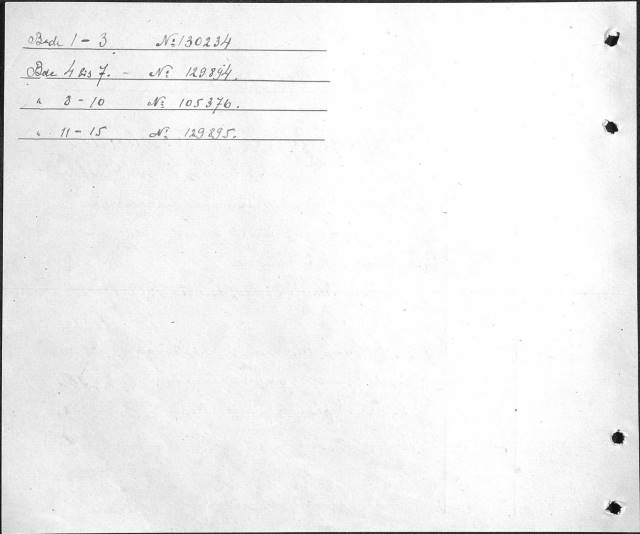 Bde 1 - 3 No 130234
Bde 4 bis 7. - No 129894.
" 8 - 10 No 105376.
" 11 - 15 No 129895.